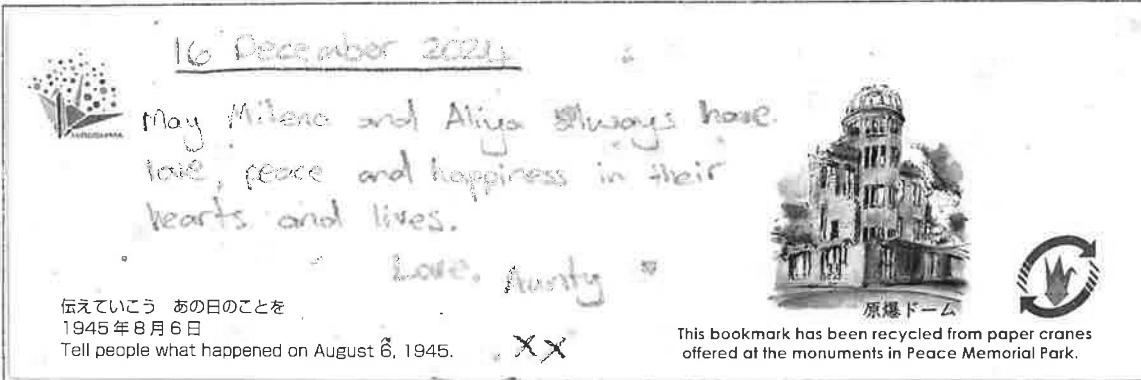 16 December 2024
HIROSHIMA
May Milena and Aliya always have
love, peace and happiness in their
hearts and lives.
Love, Aunty
xx
伝えていこう あの日のことを
1945年8月6日
Tell people what happened on August 6, 1945.
原爆ドーム
This bookmark has been recycled from paper cranes
offered at the monuments in Peace Memorial Park.